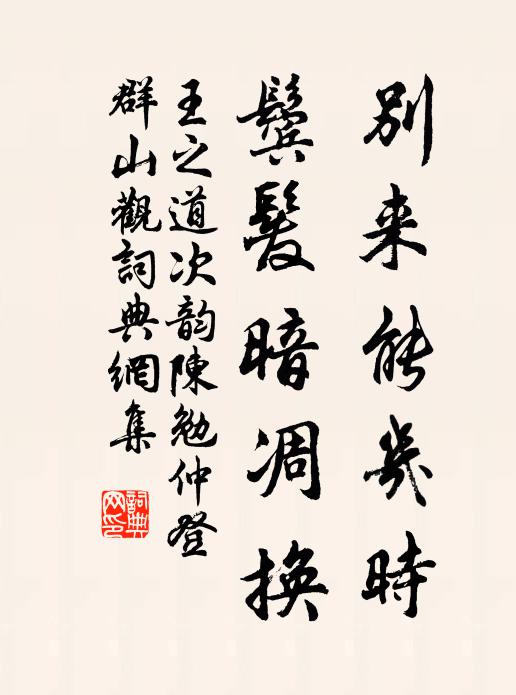 別来能幾時
鬢髮暗凋換
王之道次韵陳勉仲登
群山觀詞典網集
詞典
网印